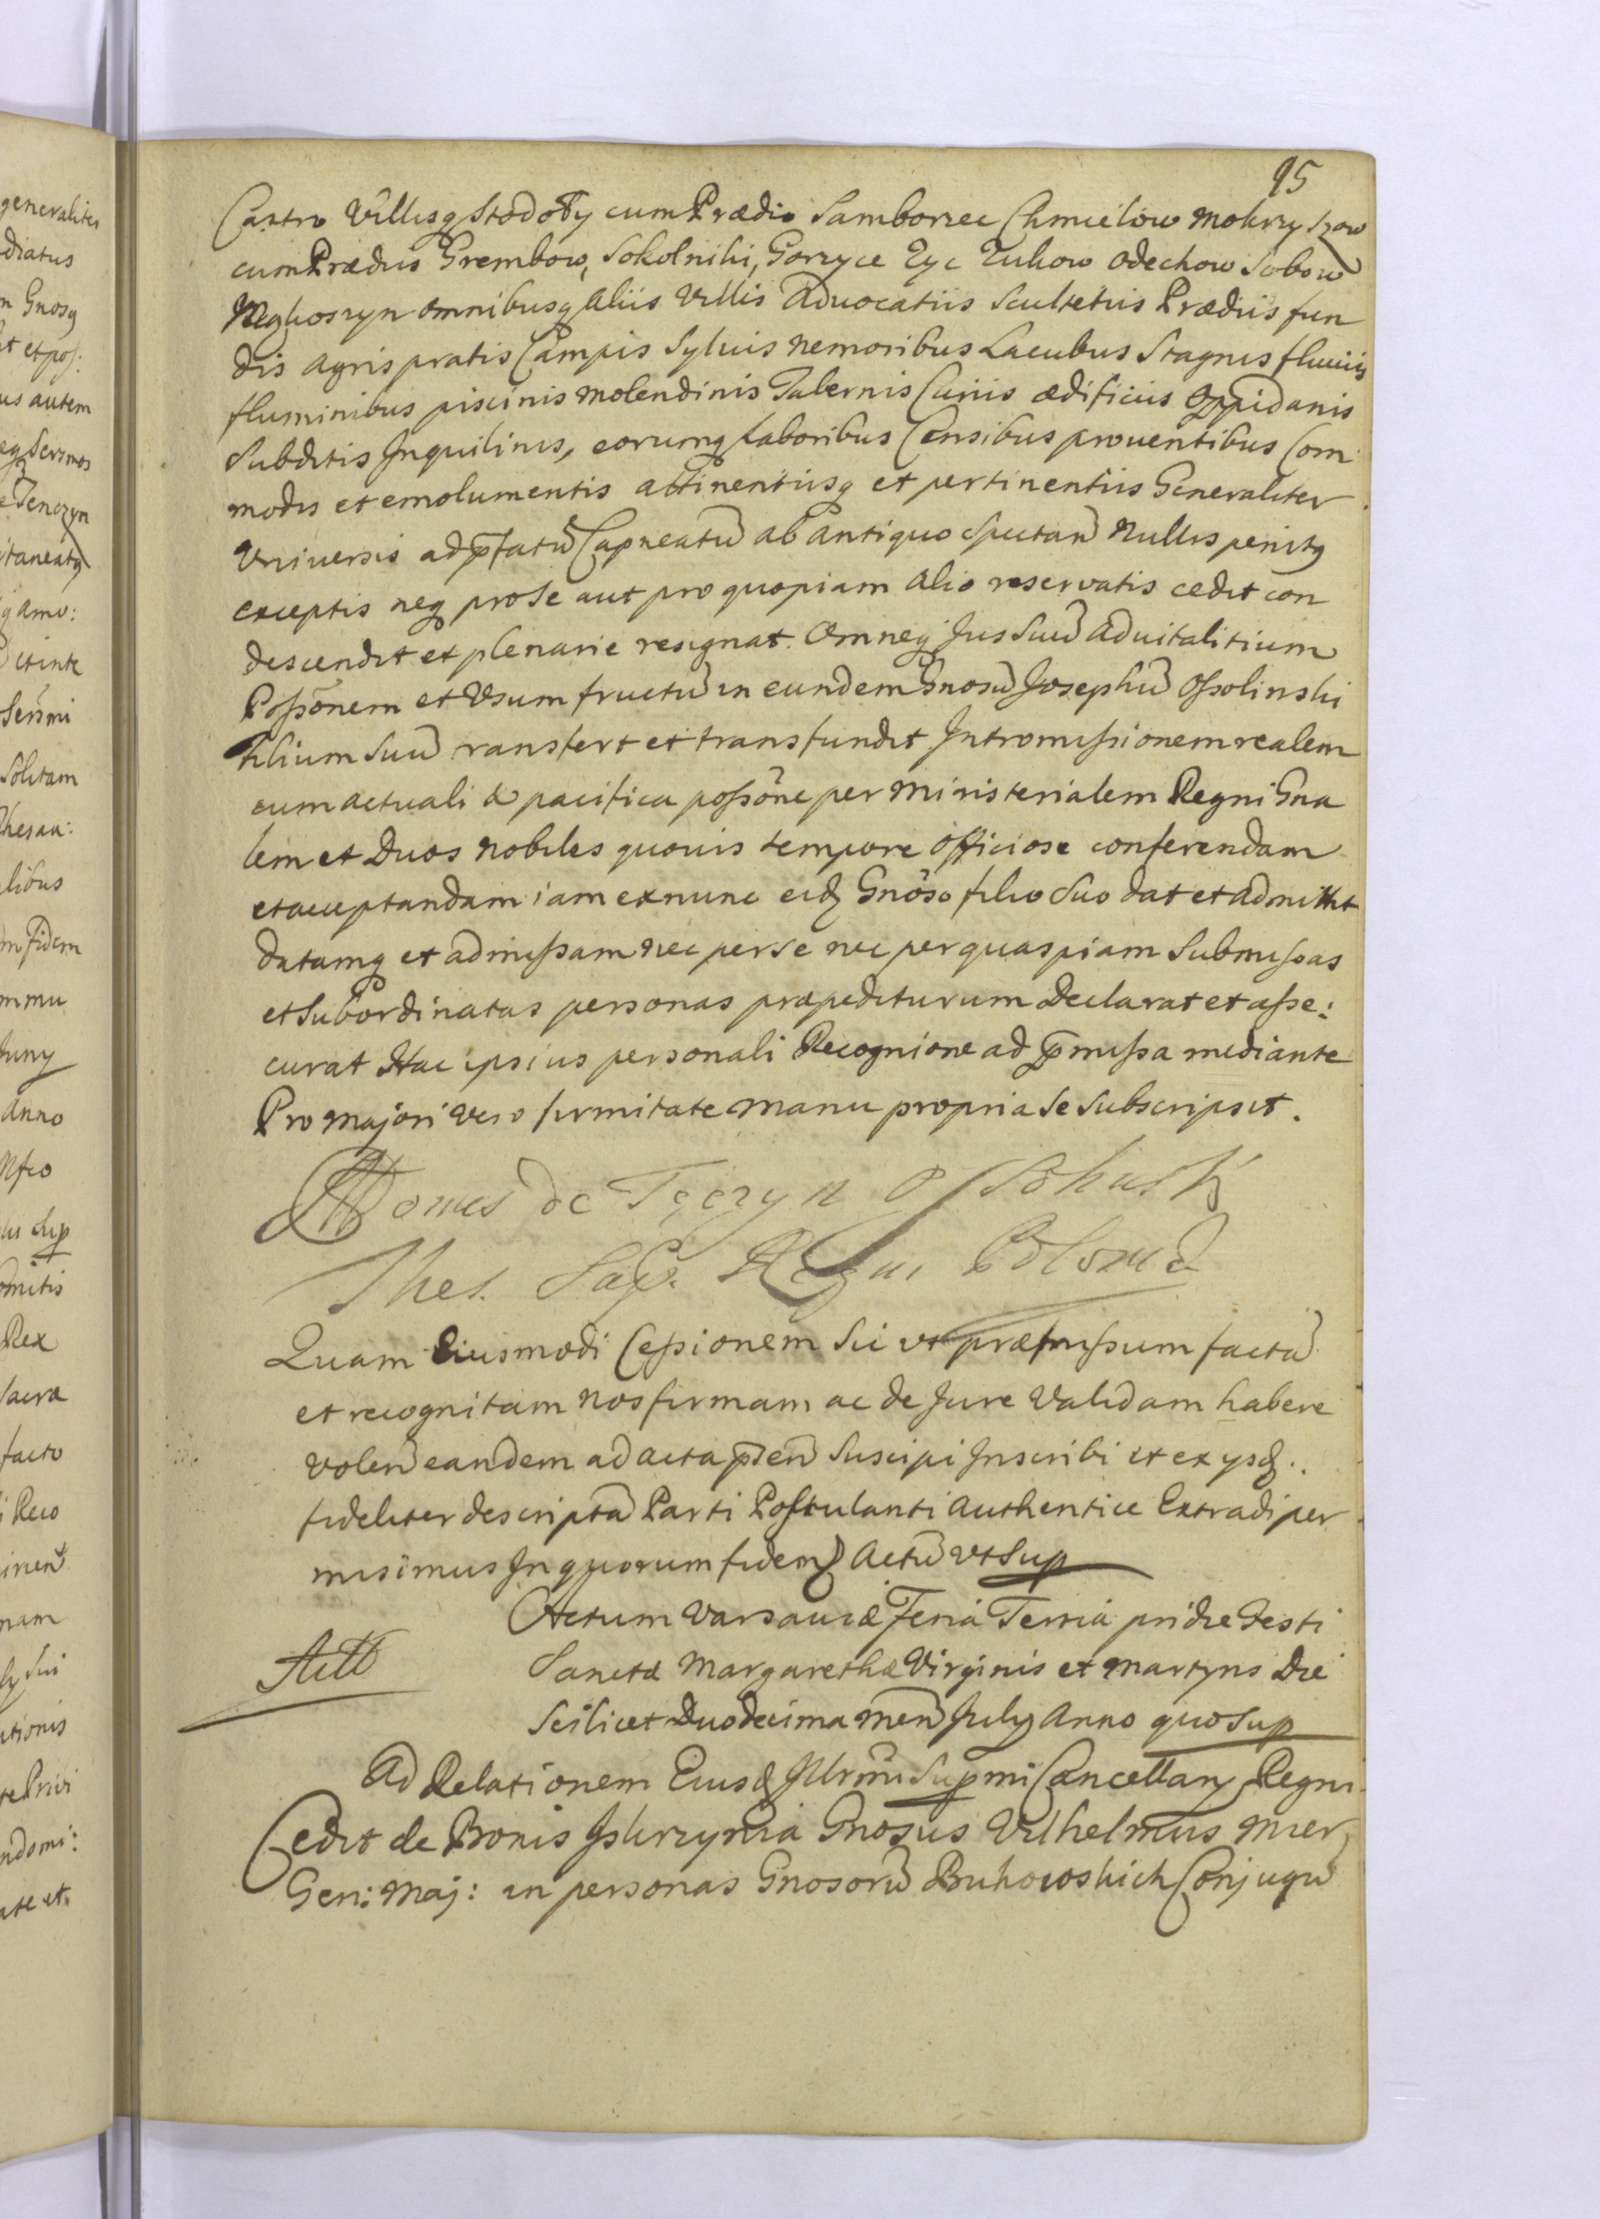 95
Castro Villisq Stodoły cum Prædio Samborzec Chmielow Mokrzyszow
cum Prædiis Grembow, Sokolniki, Gorzyce Życ Żukow Odechow Sobow
omnibusq Aliis Villis Advocatiis Scultetiis Prædiis fun
dis Agris pratis Campis Sylvis Nemoribus Lacubus Stagnis fluviis
fluminibus piscinis Molendinis Tabernis Curiis ædificiis Oppidanis
Subditis Inquilinis, eorumq laboribus Censibus proventibus Com
modis et emolumentis attinentiisq et pertinentiis Generaliter
Universis ad pfatũ Capneatũ ab antiquo Spectañ Nullis penitq
exceptis neq pro Se aut pro quopiam Alio reservatis cedit con
descendit et plenarie resignat. Omneq Jus Suũ Advitalitium
Poſsõnem et Usum fructũ in eundem Gnosũ Josephũ Oſsolinski
filium Suũ ransfert et transfundit Intromiſsionem realem
cum actuali et pacifica poſsõne per Ministerialem Regni Gna
lem et Duos Nobiles quovis tempore Officiose conferendam
et acceptandam iam ex nunc eidȝ Gnõso filio Suo dat et admittit
datamq et admiſsam nec per se nec per quaspiam Submiſsas
et Subordinatas personas præpediturum Declarat et aſse:
curat Hac ipsius personali Recognione ad pmiſsa mediante
Pro Majori Vero firmitate Manu propria Se Subscripsit.
Comes de Tęczyn Oſsolinski
Thes. Sup. Regni Poloniæ
Quam Eiusmodi Ceſsionem Sic ut præmiſsum factã
et recognitam Nos firmam ac de Jure Validam habere
Voleñ eandem ad acta pñeñ Suscipi Inscribi et ex ysdȝ.
fideliter descriptã Parti Poſtulanti Authentice Extradi per
misimus In quorum fidem Actũ ut Sup
Actum Varsaviæ Feriâ Tertiâ pridie Festi
Sanctæ Margarethæ Virginis et Martyris Die
Scilicet Duodecima Meñ July Anno quo Sup
Ad Relationem Eiusdȝ Illrmi Supmi Cancellary Regni
Cedit de Bonis Iskrzynia Gnosus Vilhelmus Mier
Gen: Maj: in personas Gnosorũ Bukowskich Conjugũ